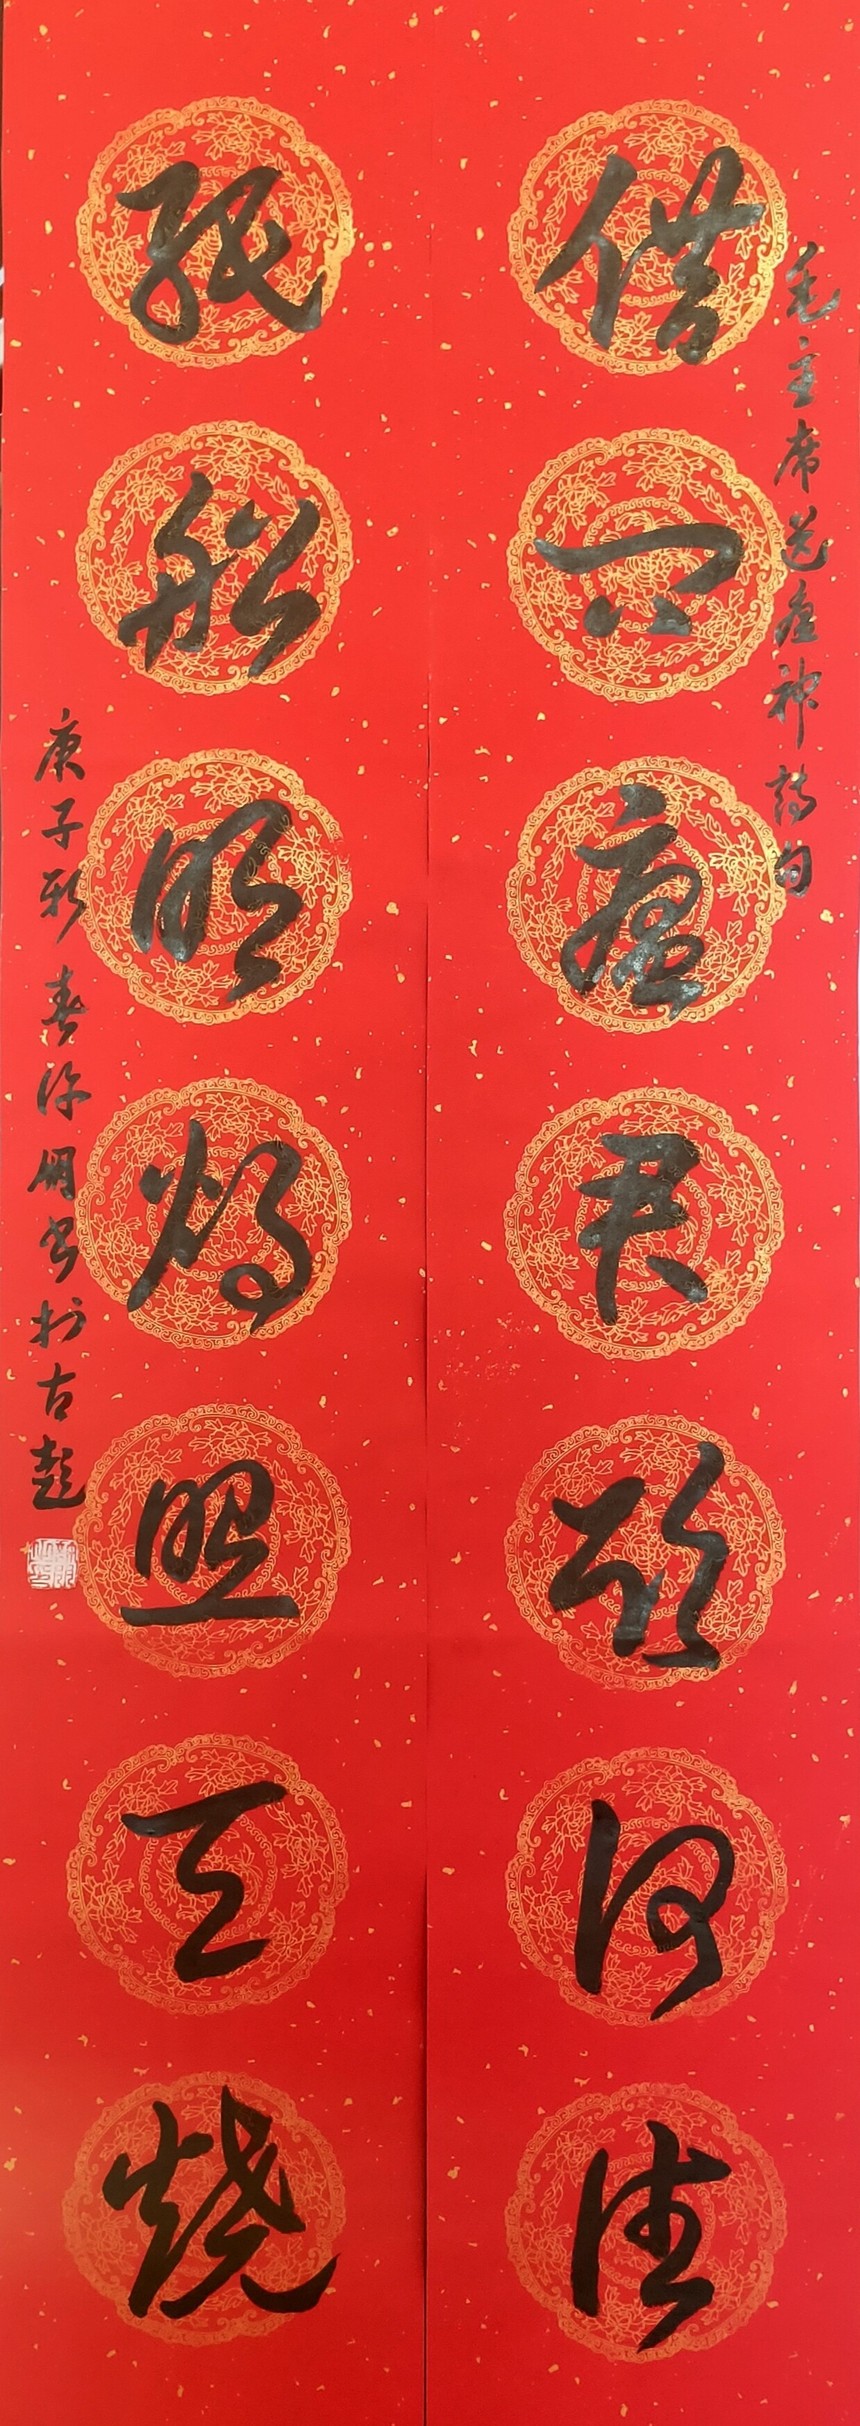 毛主席送瘟神詩句
借问瘟君欲何往
紙船明烛照天烧
庚子新春许书於古彭